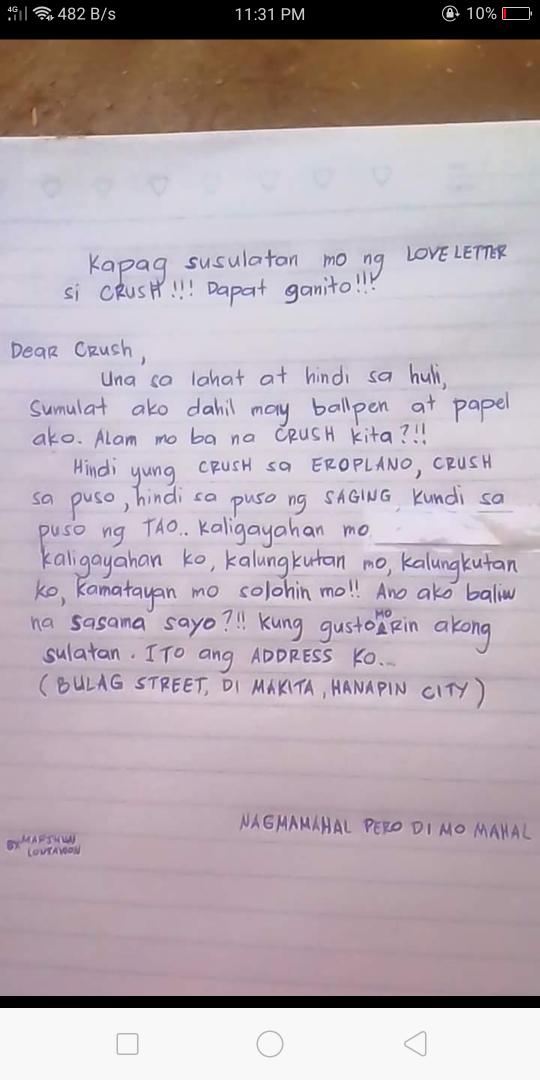 4G 482 B/s 11:31 PM 10%
Kapag susulatan mo ng LOVE LETTER
si CRUSH!!! Dapat ganito!!!
Dear Crush,
Una sa lahat at hindi sa huli,
Sumulat ako dahil may ballpen at papel
ako. Alam mo ba na CRUSH kita?!!
Hindi yung CRUSH sa EROPLANO, CRUSH
sa puso, hindi sa puso ng SAGING, kundi sa
puso ng TAO.. kaligayahan mo
kaligayahan ko, kalungkutan mo, kalungkutan
ko, kamatayan mo solohin mo!! Ano ako baliw
na sasama sayo?!! kung gusto MO Rin akong
sulatan. ITO ang ADDRESS KO...
(BULAG STREET, DI MAKITA, HANAPIN CITY)
NAGMAMAHAL PERO DI MO MAHAL
BY